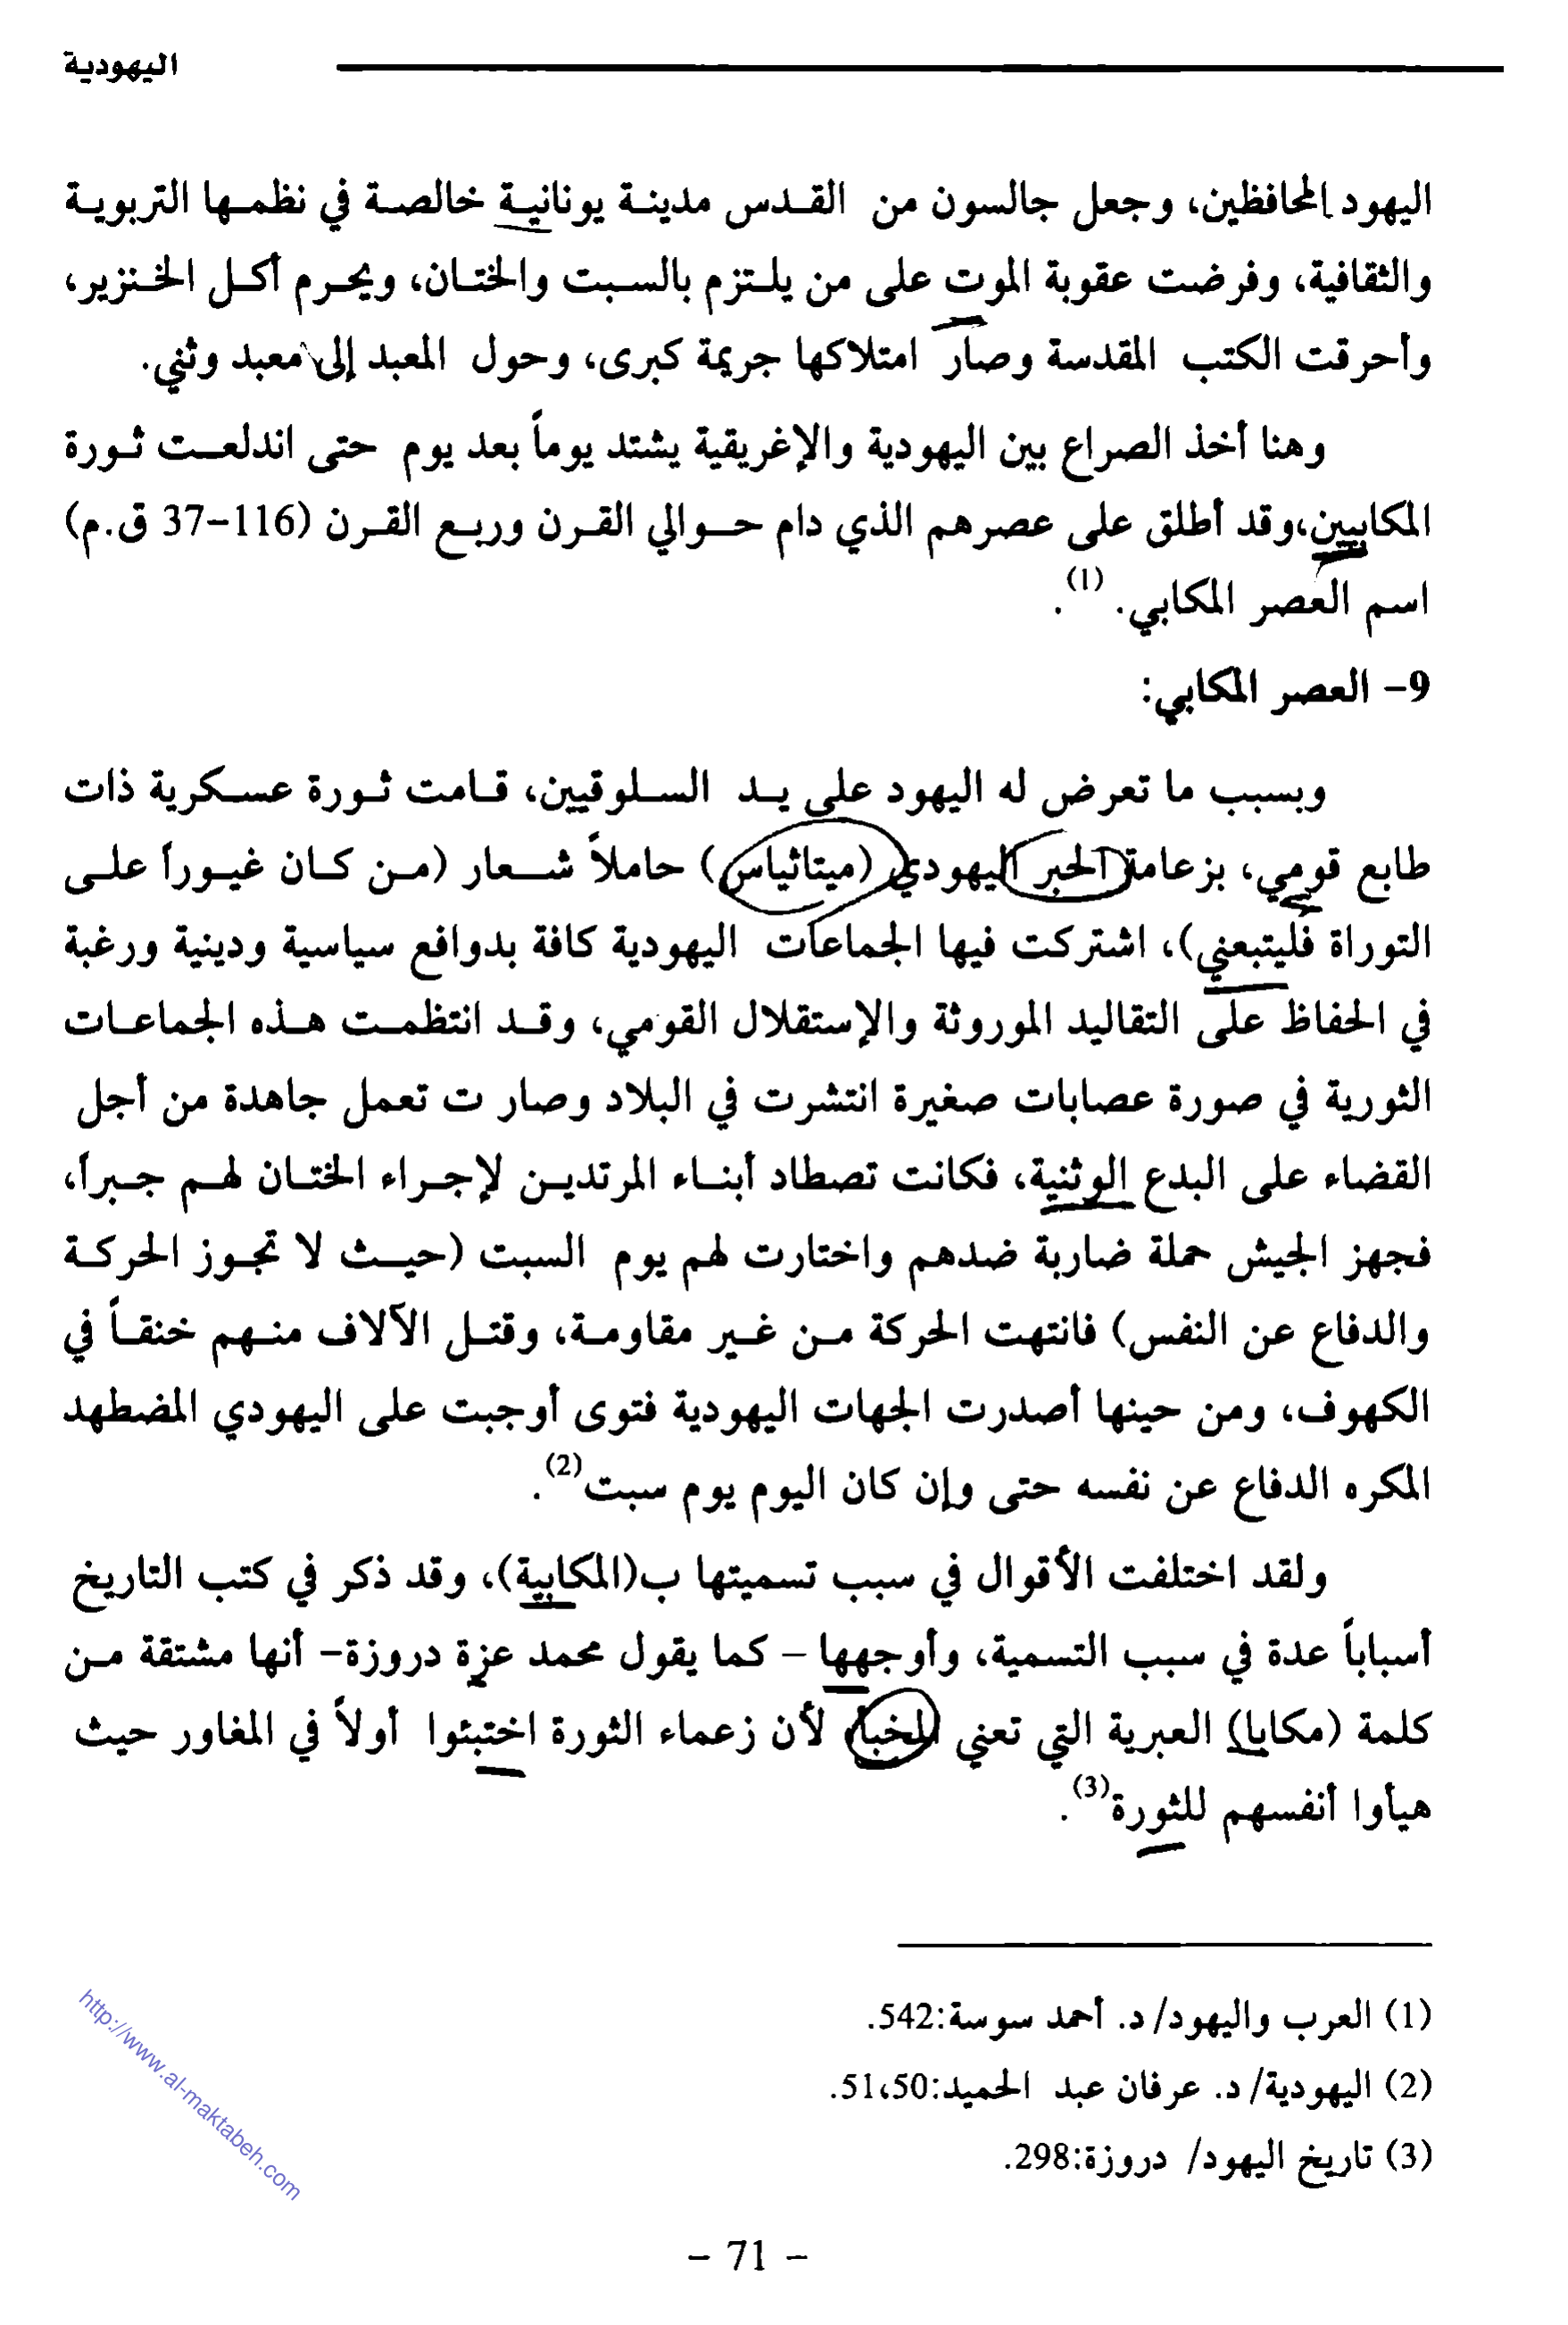 اليهودية
اليهود المحافظين، وجعل جالسون من القدس مدينة يونانية خالصة في نظمها التربوية
والثقافية، وفرضت عقوبة الموت على من يلتزم بالسبت والختان، ويحرم أكل الخنزير،
وأحرقت الكتب المقدسة وصار امتلاكها جريمة كبرى، وحول المعبد إلى معبد وثني.
وهنا أخذ الصراع بين اليهودية والإغريقية يشتد يوماً بعد يوم حتى اندلعت ثورة
المكابيين،وقد أطلق على عصرهم الذي دام حوالي القرن وربع القرن (116-37 ق.م)
اسم العصر المكابي. (1).
9- العصر المكابي:
وبسبب ما تعرض له اليهود على يد السلوقيين، قامت ثورة عسكرية ذات
طابع قومي، بزعامة الحبر اليهودي (ميتاثياس) حاملاً شعار (من كان غيوراً على
التوراة فليتبعني)، اشتركت فيها الجماعات اليهودية كافة بدوافع سياسية ودينية ورغبة
في الحفاظ على التقاليد الموروثة والإستقلال القومي، وقد انتظمت هذه الجماعات
الثورية في صورة عصابات صغيرة انتشرت في البلاد وصار ت تعمل جاهدة من أجل
القضاء على البدع الوثنية، فكانت تصطاد أبناء المرتدين لإجراء الختان لهم جبراً،
فجهز الجيش حملة ضاربة ضدهم واختارت لهم يوم السبت (حيث لا تجوز الحركة
والدفاع عن النفس) فانتهت الحركة من غير مقاومة، وقتل الآلاف منهم خنقاً في
الكهوف، ومن حينها أصدرت الجهات اليهودية فتوى أوجبت على اليهودي المضطهد
المكره الدفاع عن نفسه حتى وإن كان اليوم يوم سبت(2).
ولقد اختلفت الأقوال في سبب تسميتها ب(المكابية)، وقد ذكر في كتب التاريخ
أسباباً عدة في سبب التسمية، وأوجهها – كما يقول محمد عزة دروزة- أنها مشتقة من
كلمة (مكابا) العبرية التي تعني المخبأ، لأن زعماء الثورة اختبئوا أولاً في المغاور حيث
هيأوا أنفسهم للثورة(3).
(1) العرب واليهود/ د. أحمد سوسة:542.
(2) اليهودية/ د. عرفان عبد الحميد:50،51.
(3) تاريخ اليهود/ دروزة:298.
http://www.al-maktabeh.com
- 71 -